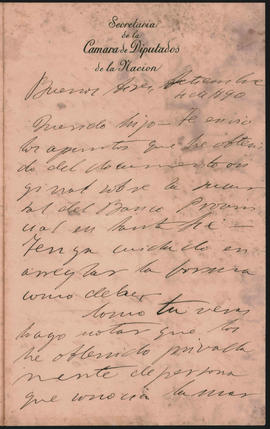 Secretaria
de la
Camara de Diputados
de la Nacion
Buenos Aires, Setiembre
4 de 1890
Querido hijo – Te envio
los apuntes que he obteni
do del documento ori
ginal sobre la sucur
sal del Banco Provin
cial en Santa Fé –
Tenga cuidado en
arreglar la forma
como debe,
Como tu veras
hago notar que los
he obtenido privada
mente de persona
que conocia la